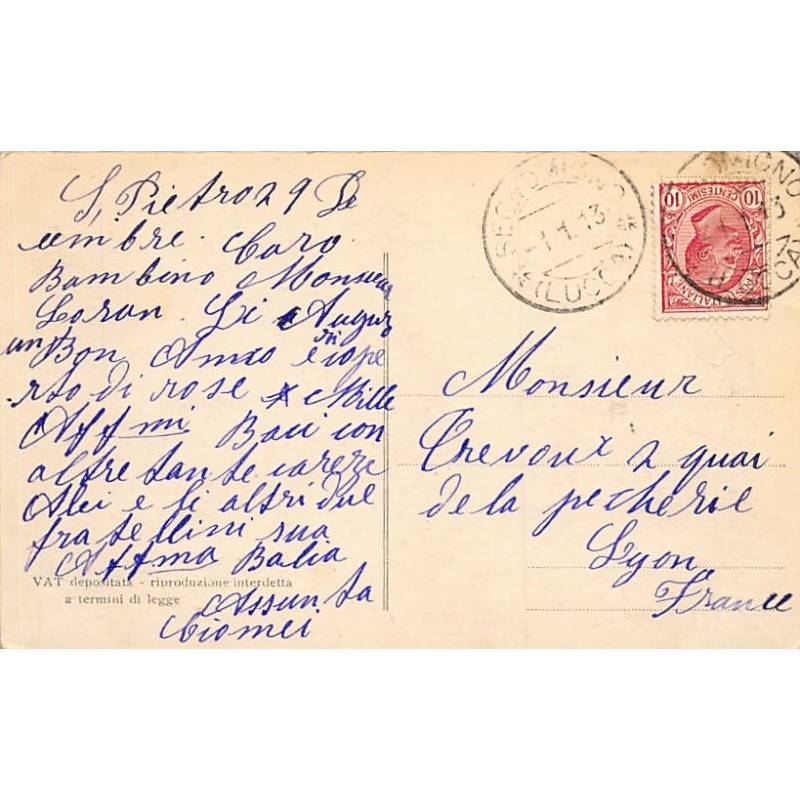 S. Pietro 29 De
cembre. Caro
Bambino Monsieur
Loran. Li Augur
un Bon Anno ri
coperto di rose Mille
Affmi Baci con
altretante careze
a lei e li altri due
fratellini sua
Affma Balia
Assunta
Ciomei
VAT depositata - riproduzione interdetta
a termini di legge
SEGROMIGNO
-1.1.13
(LUCCA)
10
CENTESIMI
10
POSTE ITALIANE
Monsieur
Trevoux 2 quai
de la pecherie
Lyon
France